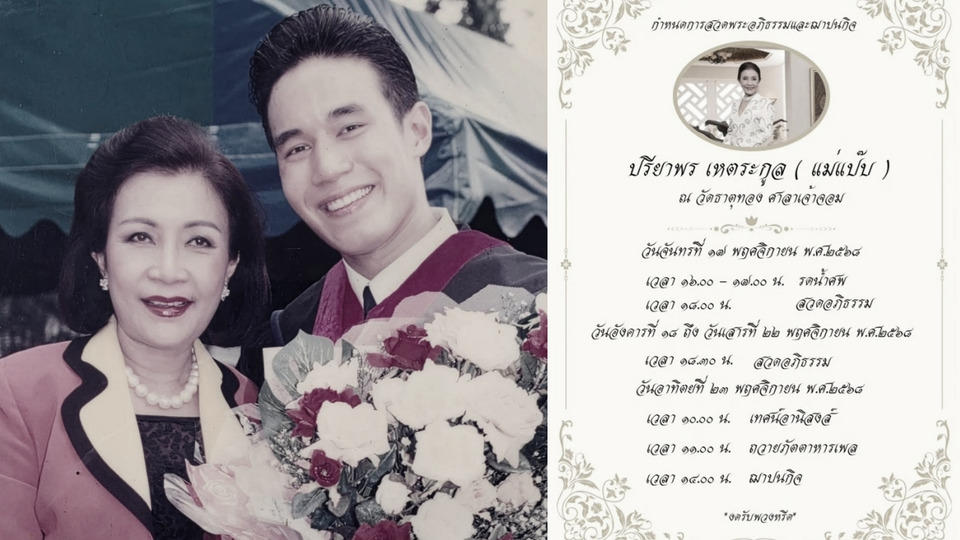 กำหนดการสวดพระอภิธรรมและฌาปนกิจ
ปรียาพร เหตระกูล ( แม่แป๊บ )
ณ วัดธาตุทอง ศาลาเจ้าจอม
วันจันทร์ที่ ๑๗ พฤศจิกายน พ.ศ.๒๕๖๘
เวลา ๑๖.๐๐ – ๑๗.๐๐ น. รดน้ำศพ
เวลา ๑๘.๐๐ น. สวดอภิธรรม
วันอังคารที่ ๑๘ ถึง วันเสาร์ที่ ๒๒ พฤศจิกายน พ.ศ.๒๕๖๘
เวลา ๑๘.๓๐ น. สวดอภิธรรม
วันอาทิตย์ที่ ๒๓ พฤศจิกายน พ.ศ.๒๕๖๘
เวลา ๑๐.๐๐ น. เทศน์อานิสงส์
เวลา ๑๑.๐๐ น. ถวายภัตตาหารเพล
เวลา ๑๔.๐๐ น. ฌาปนกิจ
*งดรับพวงหรีด*